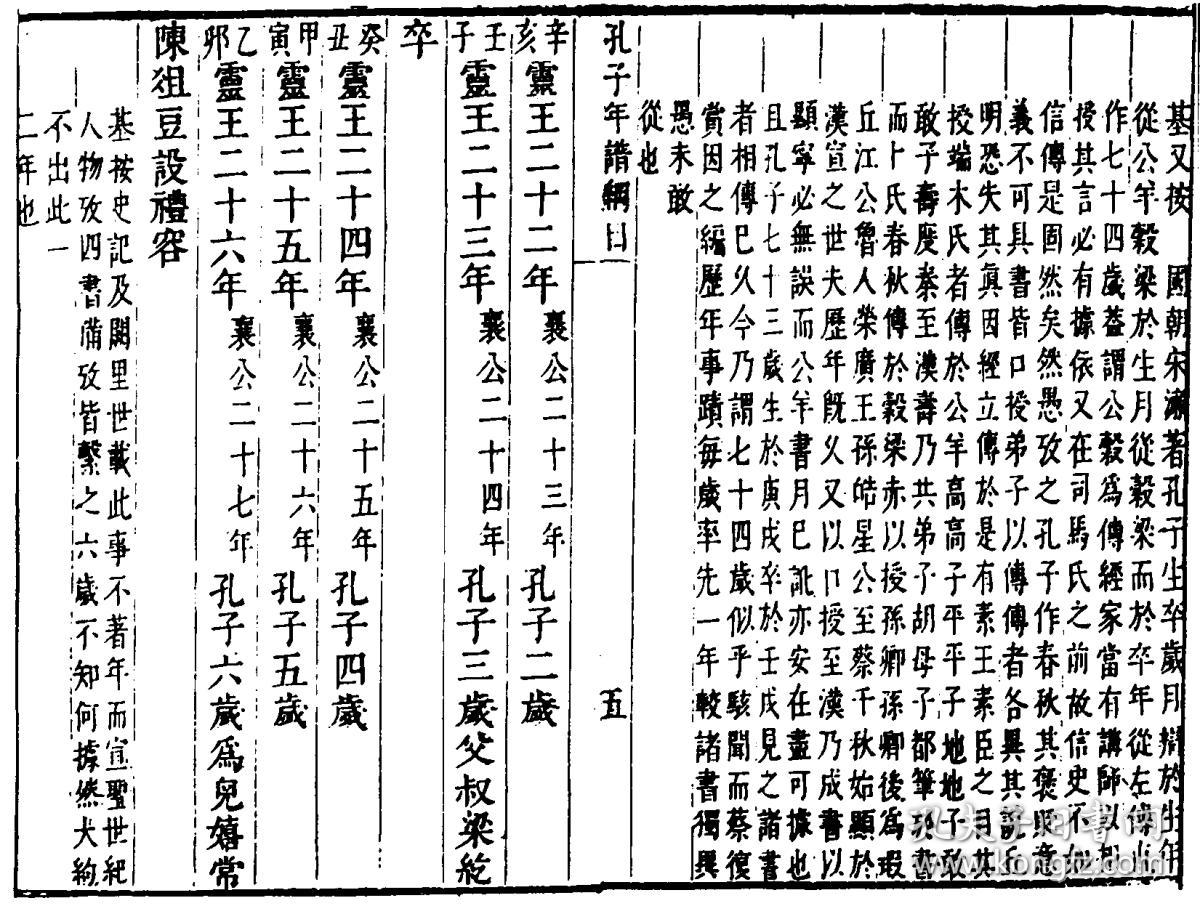 基又按　國朝宋濂著孔子生卒歲月辯於生年
從公羊穀梁於生月從穀梁而於卒年從左傳
作七十四歲蓋謂公穀爲傳經家當有講師以
授其言必有據依又在司馬氏之前故信史不
信傳是固然矣然愚攷之孔子作春秋其褒貶意
義不可具書皆口授弟子以傳傳者各異其說
明恐失其眞因經立傳於是有素王素臣之目其
授端木氏者傳於公羊高高子平平子地地子敢
敢子壽度秦至漢壽乃共弟子胡母子都筆
而卜氏春秋傳於穀梁赤以授孫卿孫卿後爲瑕
丘江公魯人榮廣王孫皓星公至蔡千秋始顯於
漢宣之世夫歷年旣久又以口授至漢乃成書以
顯寧必無誤而公羊書月巳訛亦安在盡可據也
且孔子七十三歲生於庚戌卒於壬戌見之諸書
者相傳巳久今乃謂七十四歲似乎駭聞而蔡復
賞因之編歷年事蹟每歲率先一年較諸書獨異
愚未敢
從也
孔子年譜綱目
五
辛亥靈王二十二年襄公二十三年孔子二歲
壬子靈王二十三年襄公二十四年孔子三歲父叔梁紇
卒
癸丑靈王二十四年襄公二十五年孔子四歲
甲寅靈王二十五年襄公二十六年孔子五歲
乙卯靈王二十六年襄公二十七年孔子六歲爲兒嬉常
陳俎豆設禮容
基按史記及闕里世載此事不著年而宣聖世紀
人物攷四書備攷皆繫之六歲不知何據然大約
不出此一
二年也
孔夫子旧书网
kongfz.com